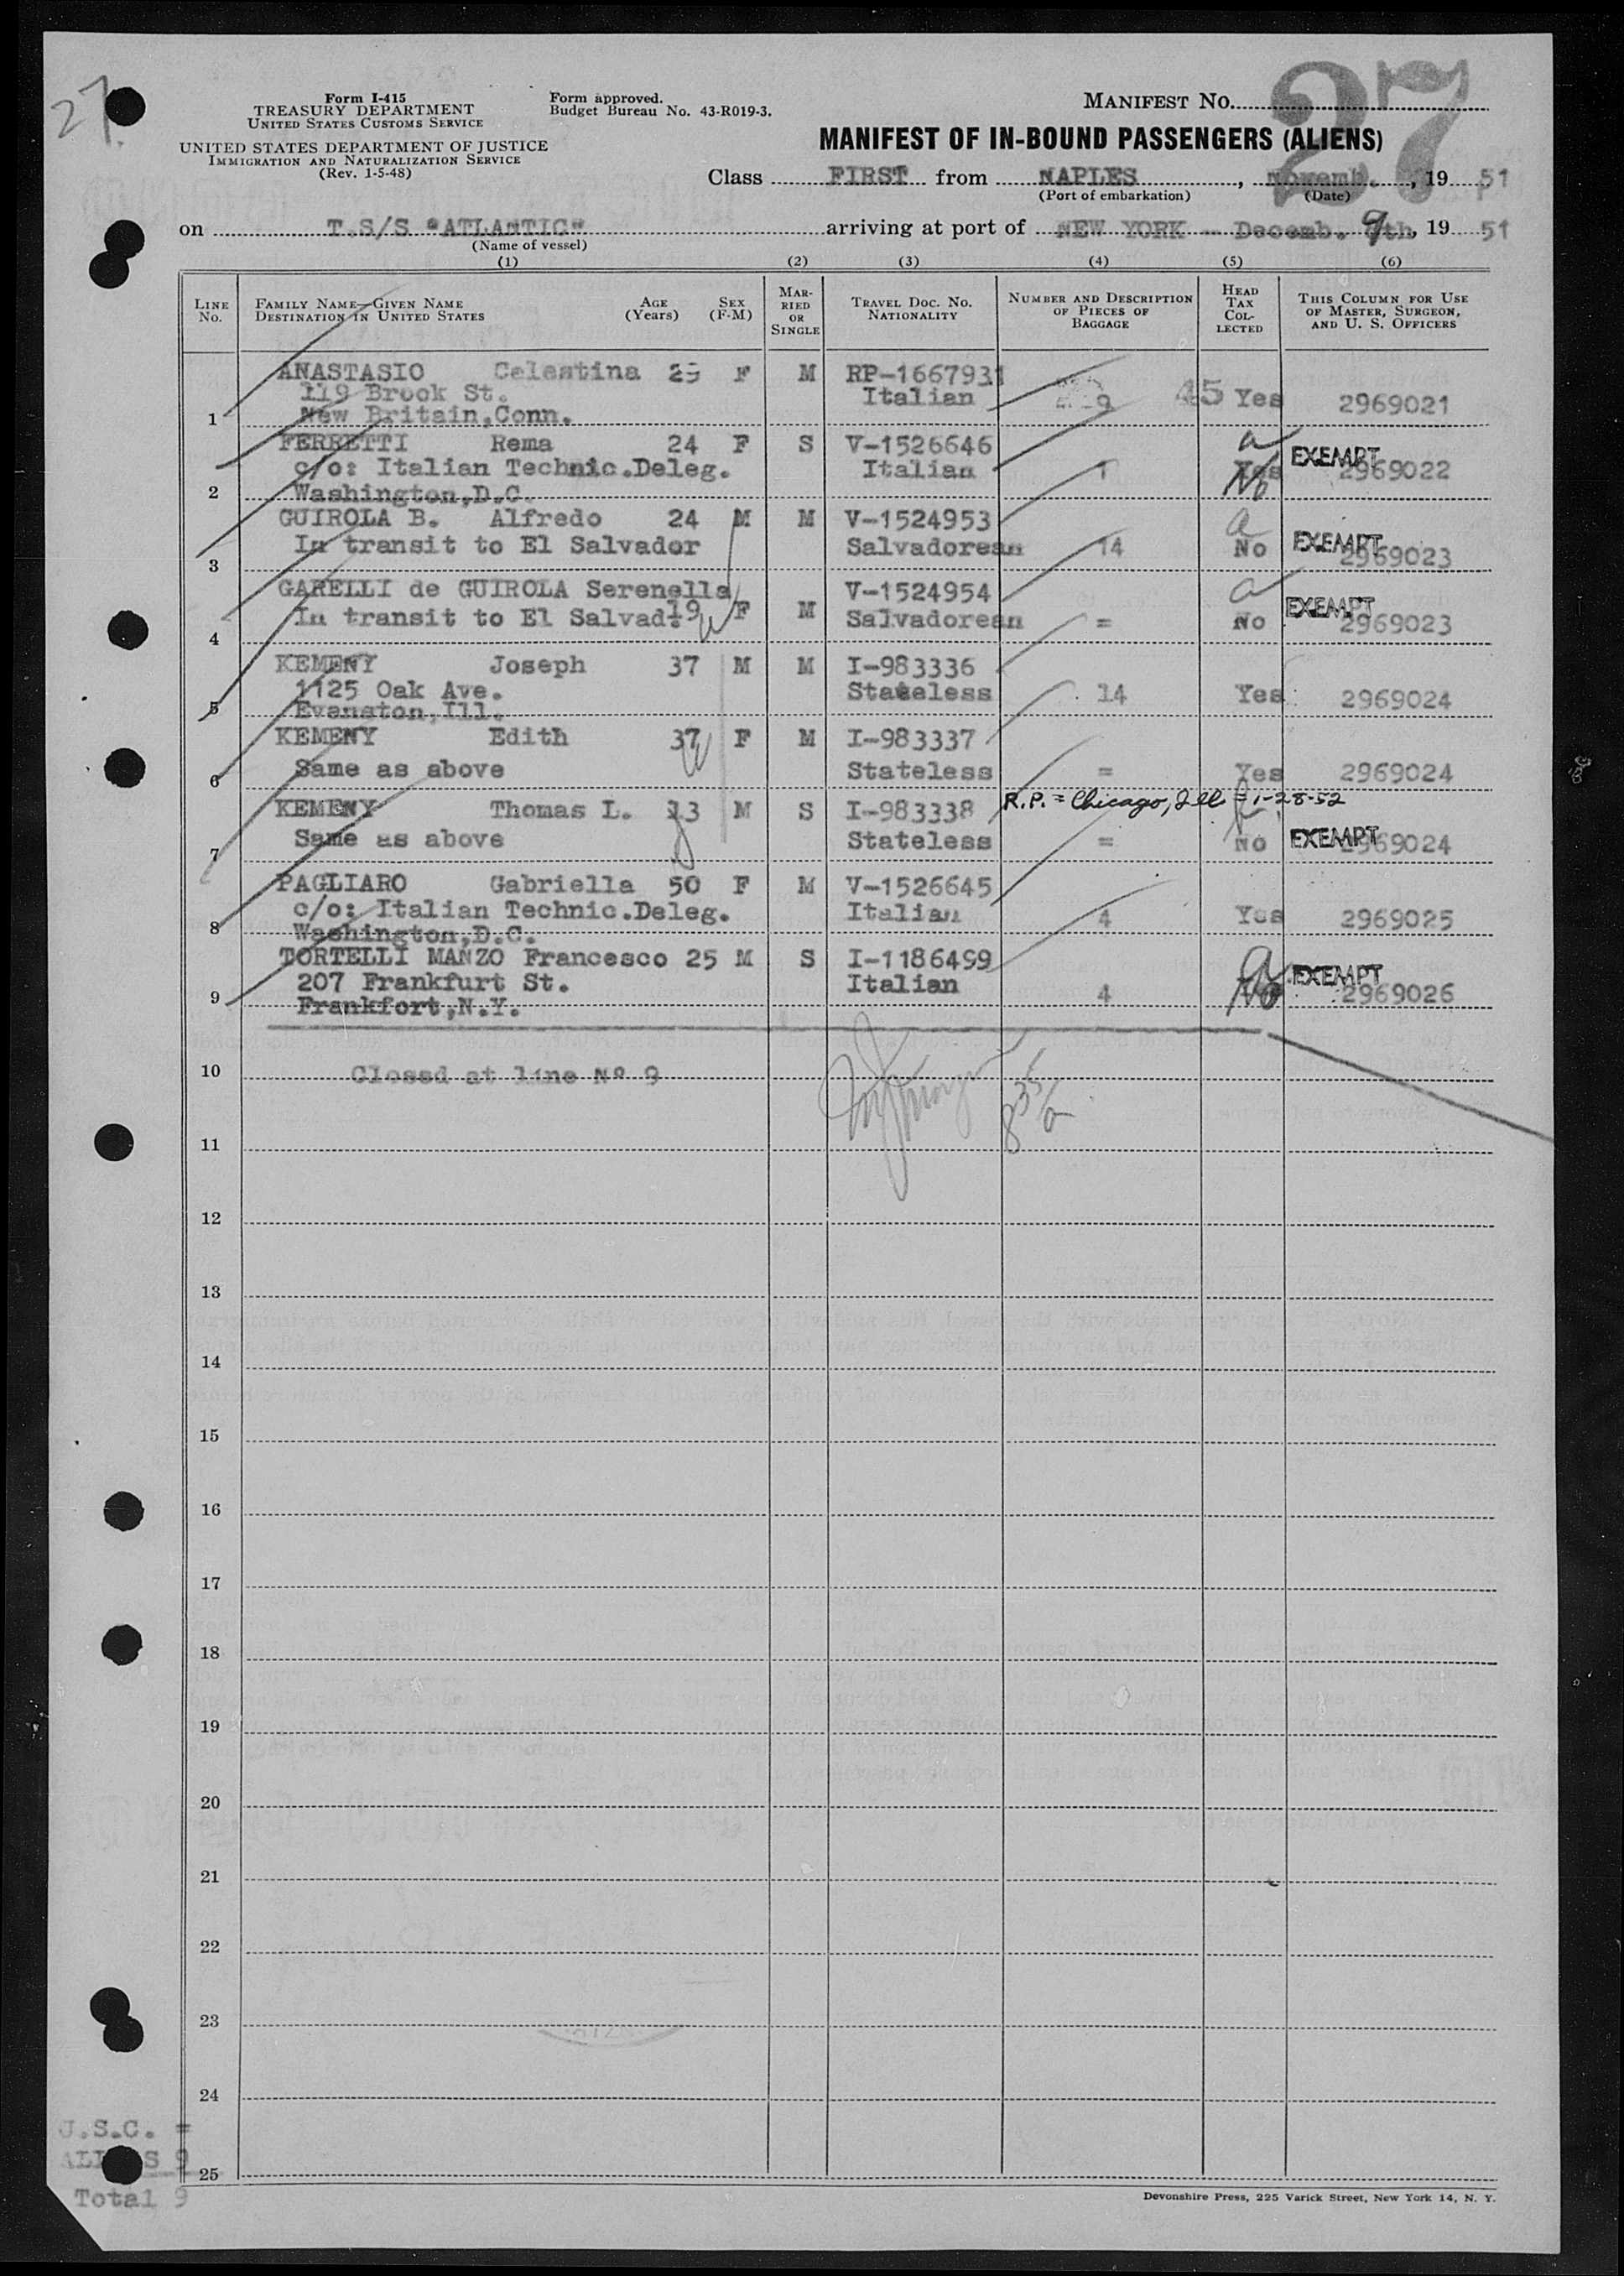 27
Form I-415
TREASURY DEPARTMENT
UNITED STATES CUSTOMS SERVICE
UNITED STATES DEPARTMENT OF JUSTICE
IMMIGRATION AND NATURALIZATION SERVICE
(Rev. 1-5-48)
Form approved.
Budget Bureau No. 43-R019-3.
MANIFEST NO. 27
MANIFEST OF IN-BOUND PASSENGERS (ALIENS)
Class FIRST from NAPLES, Novemb. , 19 51
(Port of embarkation) (Date)
on T.S/S "ATLANTIC" arriving at port of NEW YORK - Decemb. 9 th, 19 51
(Name of vessel)
(1) (2) (3) (4) (5) (6)
LINE NO. FAMILY NAME—GIVEN NAME DESTINATION IN UNITED STATES AGE (Years) SEX (F-M) MARRIED OR SINGLE TRAVEL DOC. NO. NATIONALITY NUMBER AND DESCRIPTION OF PIECES OF BAGGAGE HEAD TAX COLLECTED THIS COLUMN FOR USE OF MASTER, SURGEON, AND U. S. OFFICERS
ANASTASIO Celestina F M RP-1667931
119 Brook St. Italian 9 45 Yes 2969021
1 New Britain,Conn.
FERRETTI Rema 24 F S V-1526646 a
c/o: Italian Technic.Deleg. Italian 1 Yes No EXEMPT 2969022
2 Washington,D.C.
GUIROLA B. Alfredo 24 M M V-1524953 a
In transit to El Salvador Salvadorean 14 No EXEMPT 2969023
3
GARELLI de GUIROLA Serenella V-1524954 a
In transit to El Salvad. 19 F M Salvadorean = No EXEMPT 2969023
4
KEMENY Joseph 37 M M I-983336
1125 Oak Ave. Stateless 14 Yes 2969024
5 Evanston,Ill.
KEMENY Edith 37 F M I-983337
6 Same as above Stateless = Yes 2969024
KEMENY Thomas L. 13 M S I-983338 R.P. = Chicago, Ill = 1-28-52
7 Same as above Stateless = No EXEMPT 2969024
PAGLIARO Gabriella 50 F M V-1526645
c/o: Italian Technic.Deleg. Italian 4 Yes 2969025
8 Washington,D.C.
TORTELLI MANZO Francesco 25 M S I-1186499
207 Frankfurt St. Italian 4 No EXEMPT 2969026
9 Frankfort,N.Y.
10 Closed at line Nº 9
11
12
13
14
15
16
17
18
19
20
21
22
23
24
25
U.S.C. =
ALIENS 9
Total 9
Devonshire Press, 225 Varick Street, New York 14, N. Y.